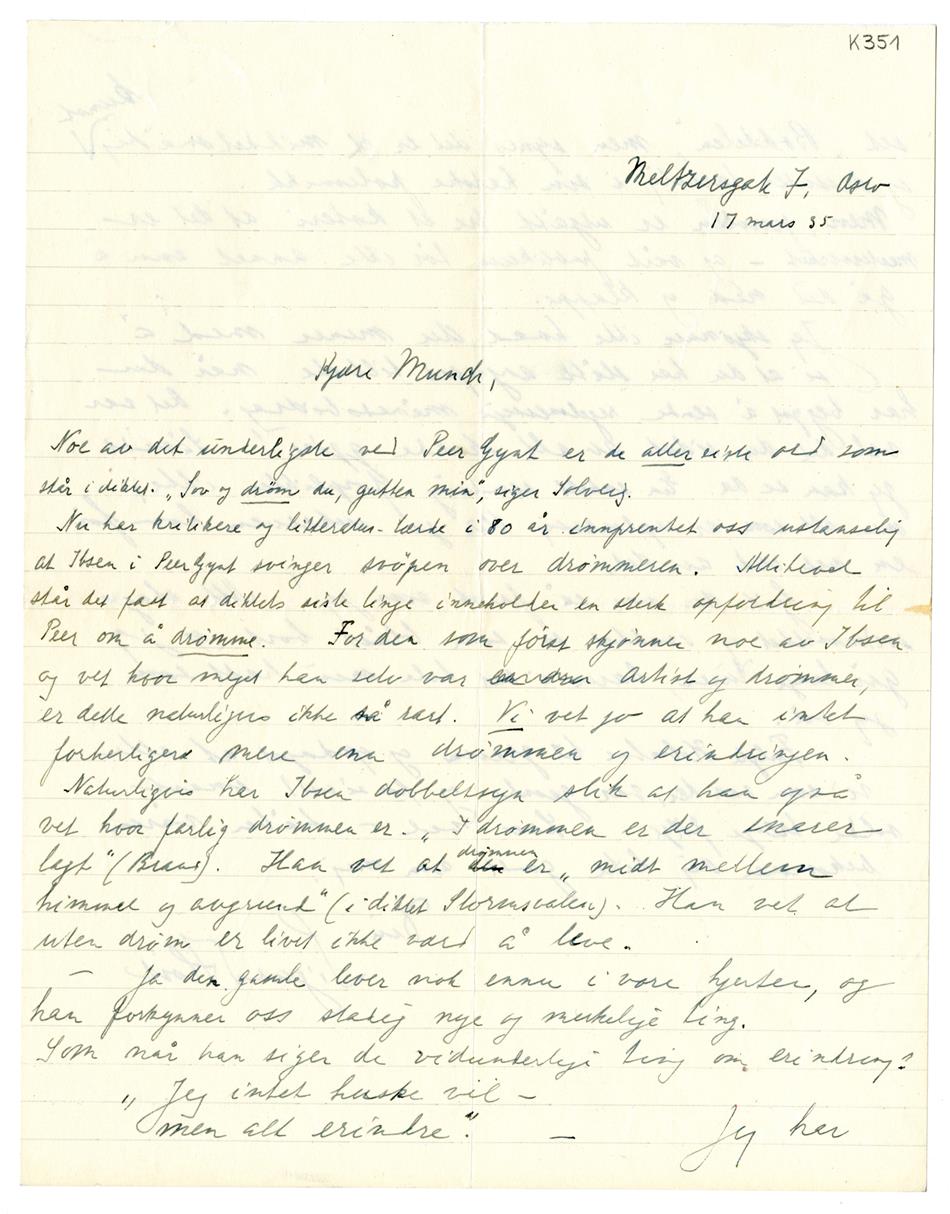 K351
Meltzersgate 7, Oslo
17 mars 35
Kjære Munch,
Noe av det underligste ved Peer Gynt er de aller siste ord som
står i diktet. „Sov og drøm du, gutten min", siger Solveig.
Nu har kritikere og litteratur-lærde i 80 år innprentet oss ustanselig
at Ibsen i Peer Gynt svinger svøpen over drømmeren. Allikevel
står det fast at diktets siste linje inneholder en sterk opfordring til
Peer om å drømme. For den som først skjønner noe av Ibsen
og vet hvor meget han selv var artist og drømmer,
er dette naturligvis ikke så rart. Vi vet jo at han intet
forherligere mere enn drømmen og erindringen.
Naturligvis har Ibsen dobbeltsyn slik at han også
vet hvor farlig drømmen er. „I drømmen er der snarer
lagt" (Brand). Han vet at drømmen er „midt mellem
himmel og avgrund" (i diktet Stormsvalen). Han vet at
uten drøm er livet ikke værd å leve.
– Ja den gamle lever nok ennu i vore hjerter, og
han forkynner oss stadig nye og merkelige ting.
Som når han siger de vidunderlige ting om erindring:
„Jeg intet huske vil –
men alt erindre". – Jeg har